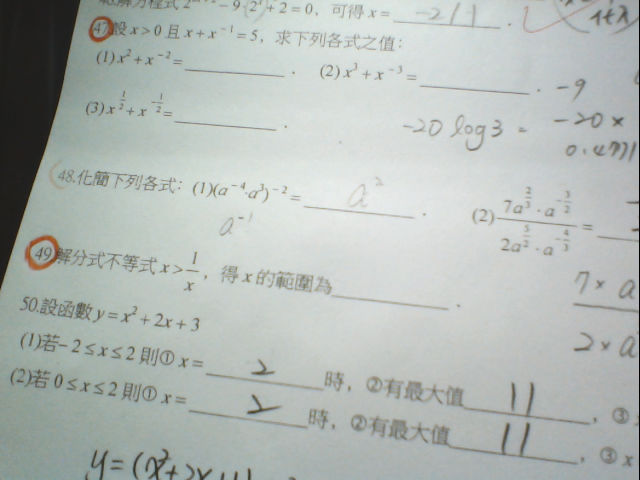 解方程式 2 - 9·2 + 2 = 0，可得 x = -2 / 1 .
47.設 x > 0 且 x + x⁻¹ = 5，求下列各式之值：
(1) x² + x⁻² = ________ . (2) x³ + x⁻³ = ________ . -9
(3) x^(1/2) + x^(-1/2) = ________ . -20 log3 = -20 ×
0.4771
48.化簡下列各式：(1)(a⁻⁴·a³)⁻² = a² . (2) (7a^(2/3)·a^(-3/2))/(2a^(5/2)·a^(-4/3)) =
a⁻¹
49.解分式不等式 x > 1/x，得 x 的範圍為________ .
7 × a
2 × a
50.設函數 y = x² + 2x + 3
(1)若 -2 ≤ x ≤ 2 則① x = 2 時，②有最大值 11 ，③
(2)若 0 ≤ x ≤ 2 則① x = 2 時，②有最大值 11 ，③ x
y = (x² + 2x + 1)